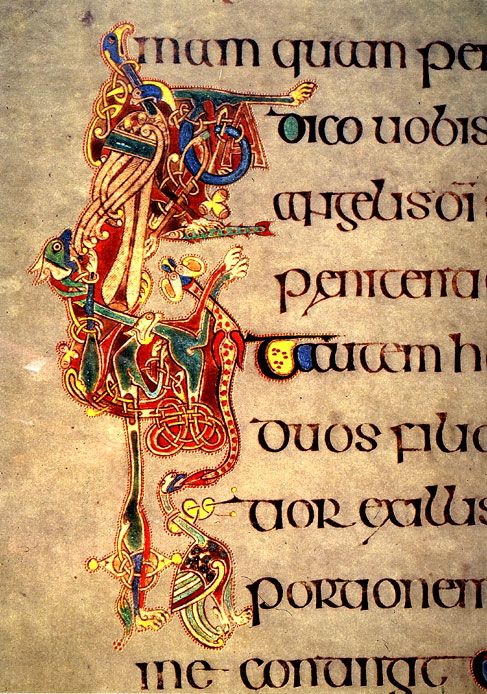 mam quam per
dico uobis
angelis dī s
penitentia
t autem h
duos filio
tior ex illis
portionem
me contingit